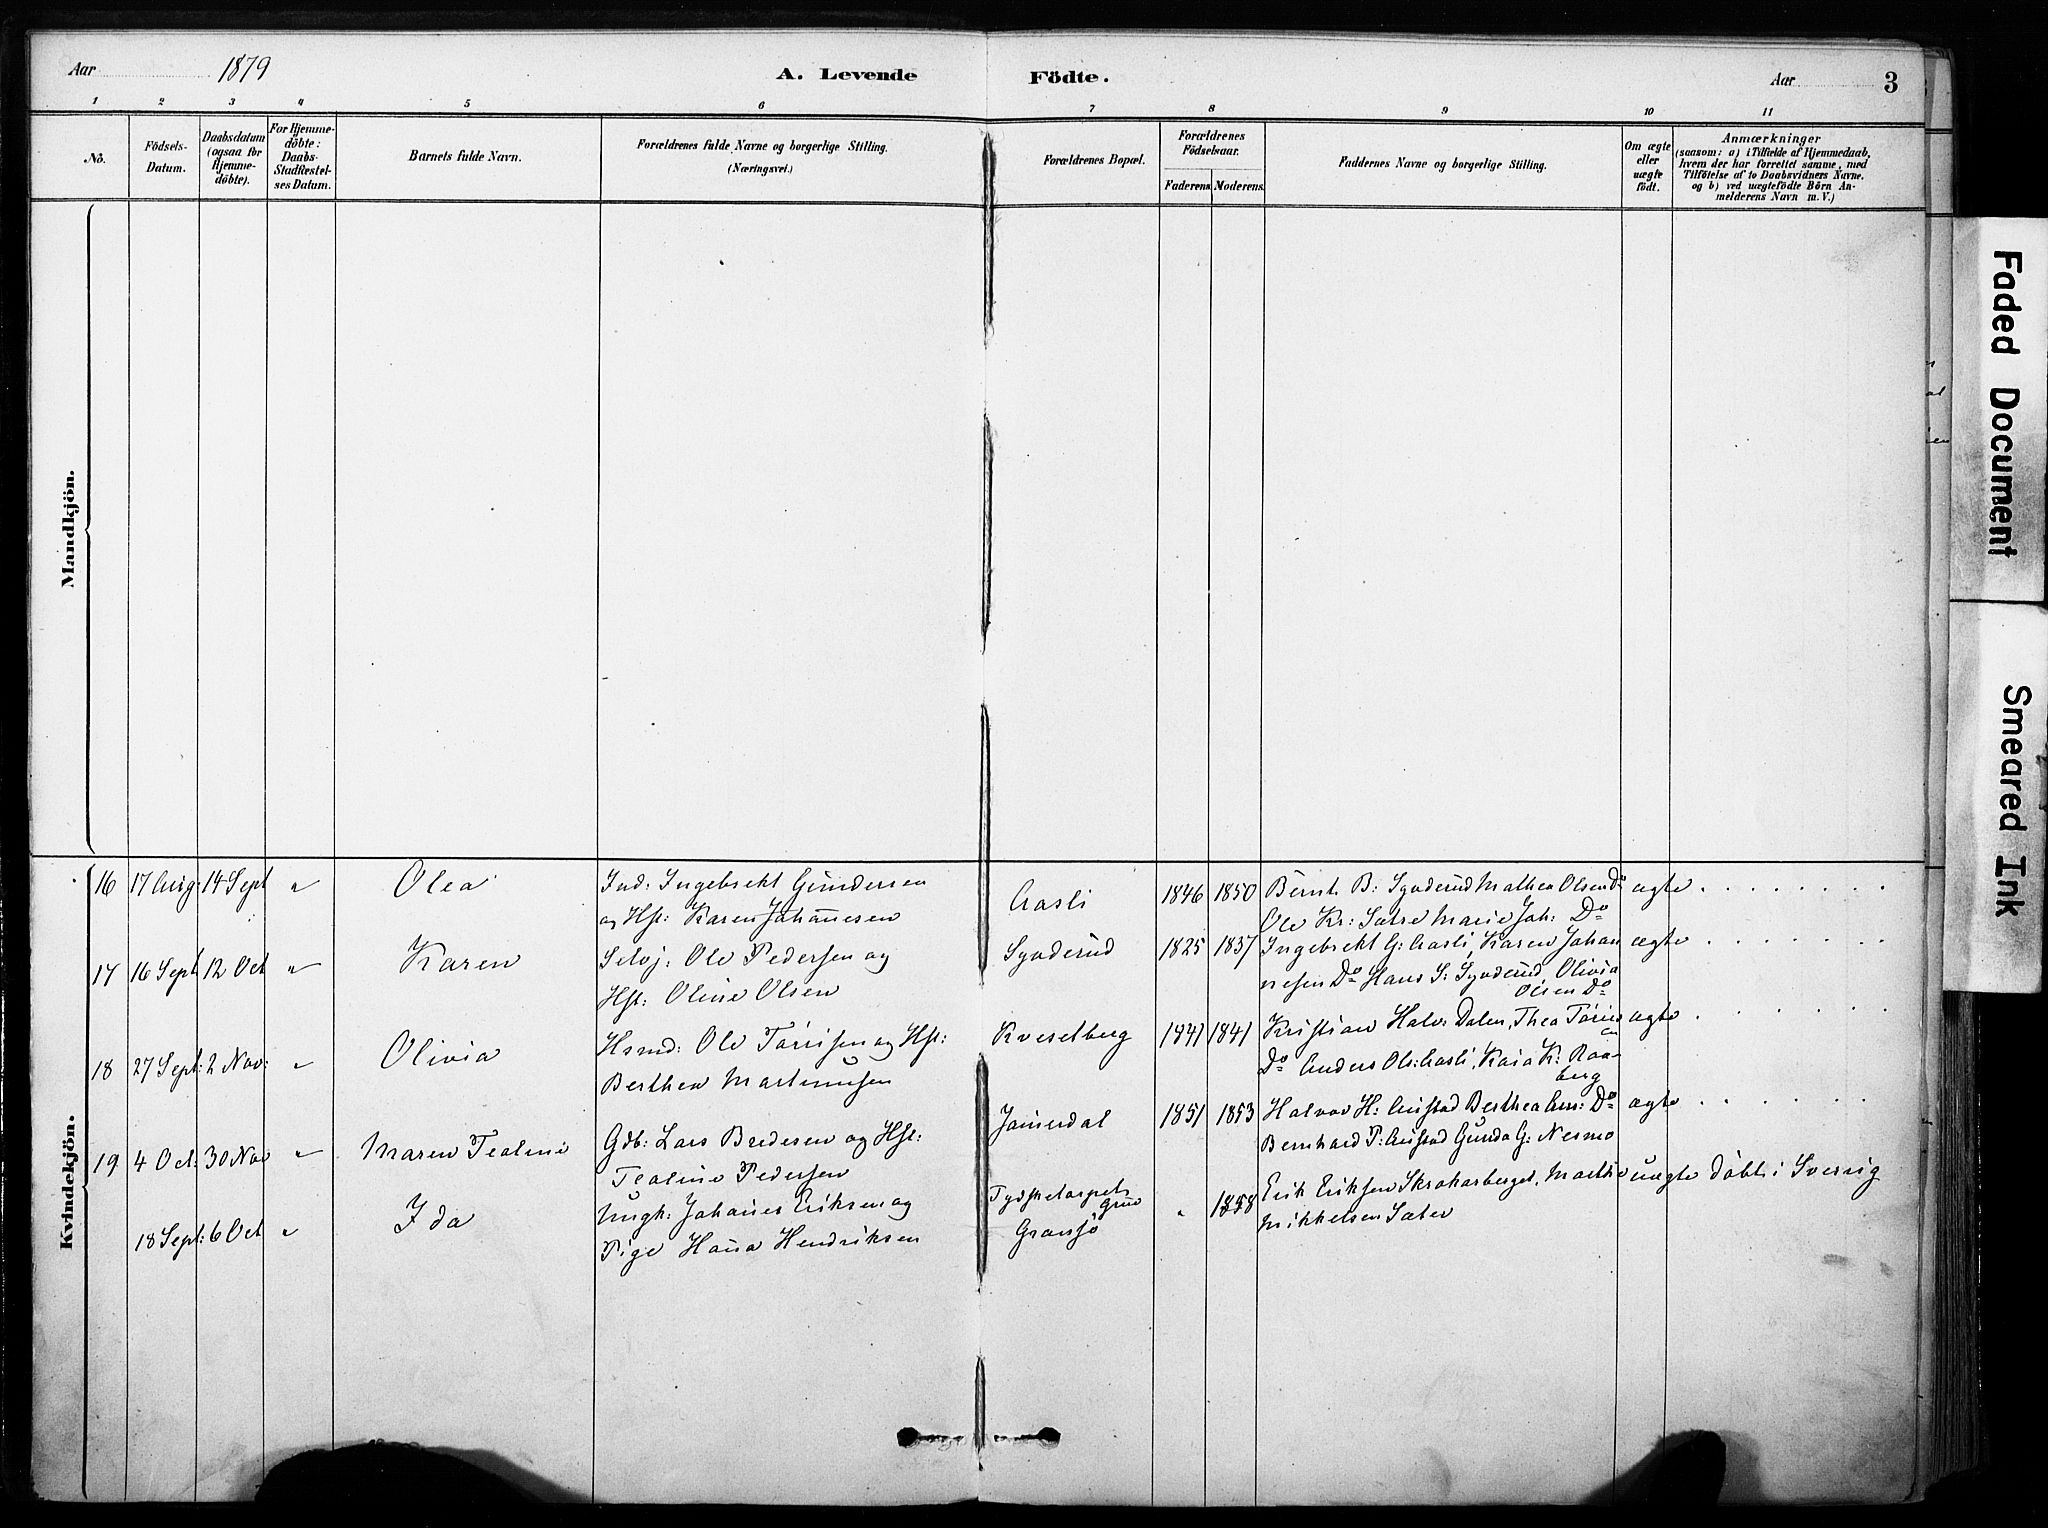 Aar 1879 A. Levende Födte. Aar 3
1 2 3 4 5 6 7 8 9 10 11
No.
Födsels-
Datum.
Daabsdatum
(ogsaa for
Hjemme-
döbte).
For Hjemme-
döbte:
Daabs-
Stadfæstel-
ses Datum.
Barnets fulde Navn.
Forældrenes fulde Navne og borgerlige Stilling.
(Næringsvei.)
Forældrenes Bopæl.
Forældrenes
Födselsaar.
Faderens. Moderens.
Faddernes Navne og borgerlige Stilling.
Om ægte
eller
uægte
födt.
Anmærkninger
(saasom: a) i Tilfælde af Hjemmedaab,
hvem der har forrettet samme, med
Tilföielse af to Daabsvidners Navne,
og b) ved uægtefödte Börn An-
melderens Navn m. V.)
Mandkjön.
Kvindekjön.
16 17 Aug: 14 Sept " Olea
Ind: Ingebrekt Gundersen
og Hst: Karen Johannesen
Aasli 1846 1850
Bernt B: Synderud Mathea Olsen Do
Ole Kr: Sætre Marie Joh: Do
ægte
17 16 Sept 12 Oct " Karen
Selvj: Ole Pedersen og
Hst: Oline Olsen
Synderud 1825 1837
Ingebrekt G: Aasli, Karen Johan
nesen Do Hans S: Synderud, Olivia
Olsen Do
ægte
18 27 Sept: 2 Nov: " Olivia
Hsmd: Ole Tørrisen og Hst:
Berthea Martinusen
Kveselberg 1841 1841
Kristian Halv: Dalen, Thea Tørris
en
Do Anders Ols: Aasli, Kaia K: Raa-
berg
ægte
19 4 Oct: 30 Nov " Maren Tealine
Gdb: Lars Bredesen og Hst:
Tealine Pedersen
1851 1853
Halvor H: Austad Berthea Do
Bernhard P: Austad Gunda G: Nesmo
ægte
18 Sept: 6 Oct " Ida
Ungk: Johanes Eriksen og
Pige Hana Hendriksen
Tydsketorpets
Grue
Gransjö
" 1858
Erik Eriksen Skrakarberget, Marthe
Mikkelsen Sæter
uægte
döbt i Sverrig
Faded Document
Smeared Ink